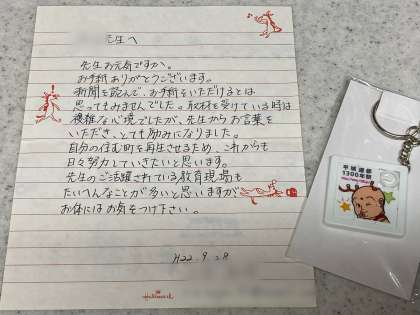 先生へ
先生お元気ですか。
お手紙ありがとうございます。
新聞を読んで、お手紙をいただけるとは
思ってもみませんでした。取材を受けている時は
複雑な心境でしたが、先生からお言葉を
いただき、とても励みになりました。
自分の住む町を再生させるため、これからも
日々努力していきたいと思います。
先生のご活躍されている教育現場も
たいへんなことが多いと思いますが、
お体にはお気をつけ下さい。
H22.9.28
Hallmark
平城遷都
1300年祭